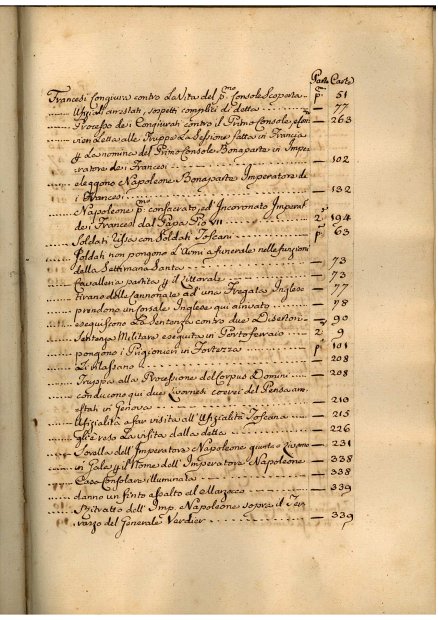 Parte Carte
Francesi Congiura contro La Vita del p.mo Console Scoperta p.a 51
Ufiziali arrestati, sospetti complici di detta — 77
Processo dei Congiurati contro il Primo Console, e — 263
vien Letta alle Truppe La Sessione fatta in Francia
p la nomina del Primo Console Bonaparte in Impe-
ratore dei Francesi — 102
eleggono Napoleone Bonaparte Imperatore de
i Francesi — 132
Napoleone p.mo consacrato, ed Incoronato Imperat
dei Francesi dal Papa Pio VII 2 194
Soldati Rissa con Soldati Toscani p 63
Soldati non pongono l'Armi a funerale nelle funzioni
della Settimana Santa — 73
Cavalleria partita p il Littorale — 73
tirano delle Cannonate ad una Fregata Inglese — 77
prendono un Corsale Inglese qui arrivato — 78
eseguiscono La Sentenza contro due Disertori — 90
Sentenza Militare eseguita in Portoferraio 2 9
pongono i Prigionieri in Fortezza p 101
Li rilassano — 208
Truppa alla Processione del Corpus Domini — 208
conducono qui due Livornesi correi del Pensa arre-
stati in Genova — 210
Ufizialità a far visita all'Ufizialità Toscana — 215
gli è resa La visita dalla detta — 226
Sorella dell'Imperatore Napoleone giunta a — 231
in Gala p il Nome dell'Imperatore Napoleone — 338
Casa Consolare illuminata — 338
danno un finto assalto al Marzocco — 339
Ritratto dell'Imp. Napoleone sopra il Ter-
razzo del Generale Verdier — 339